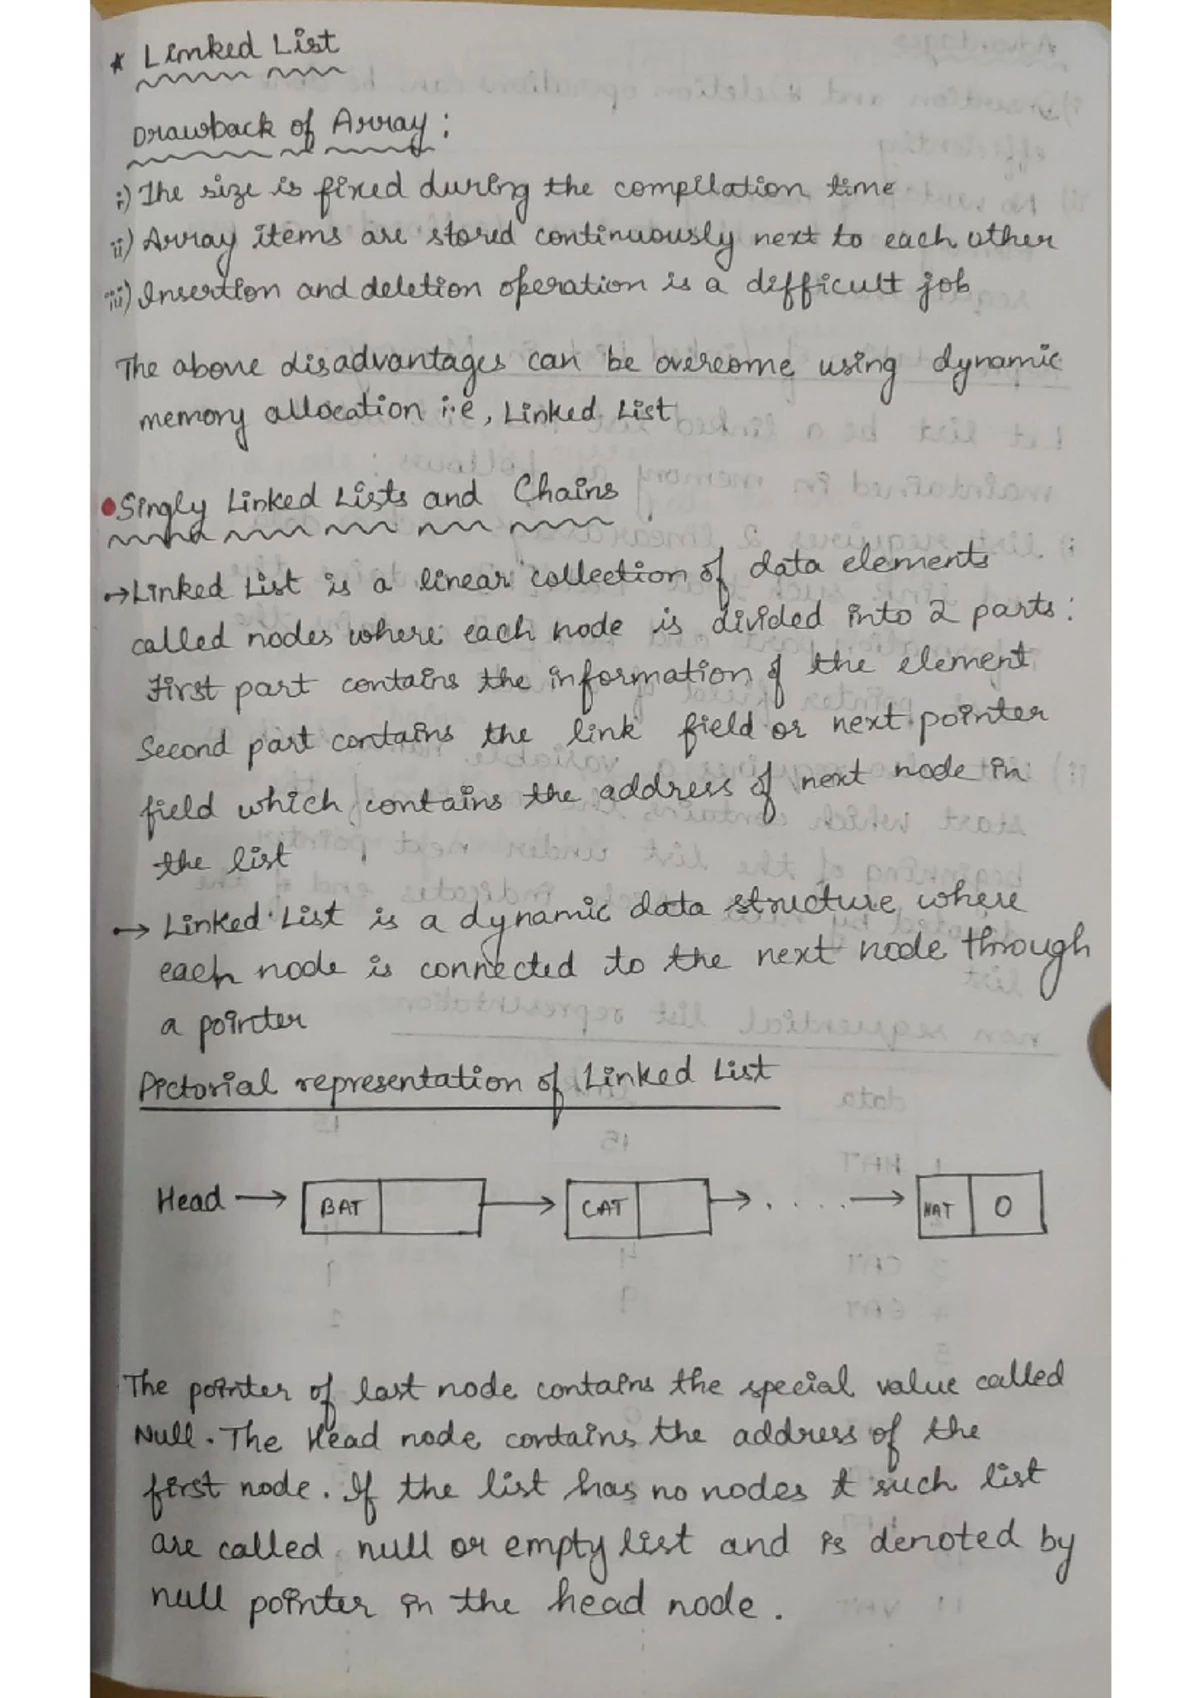 * Linked List
Drawback of Array:
i) The size is fixed during the compilation time
ii) Array items are stored continuously next to each other
iii) Insertion and deletion operation is a difficult job
The above disadvantages can be overcome using dynamic
memory allocation i.e, Linked List
• Singly Linked Lists and Chains
→ Linked List is a linear collection of data elements
called nodes where each node is divided into 2 parts:
First part contains the information of the element
Second part contains the link field or next pointer
field which contains the address of next node in
the list
→ Linked List is a dynamic data structure where
each node is connected to the next node through
a pointer
Pictorial representation of Linked List
Head → BAT → CAT → . . . . . → HAT 0
The pointer of last node contains the special value called
Null. The Head node contains the address of the
first node. If the list has no nodes such list
are called null or empty list and is denoted by
null pointer in the head node.